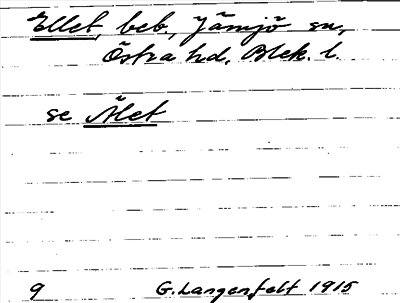 Ellet, beb., Jämjö sn,
Östra hd, Blek. l.
se Ålet
9 G. Langenfelt 1915